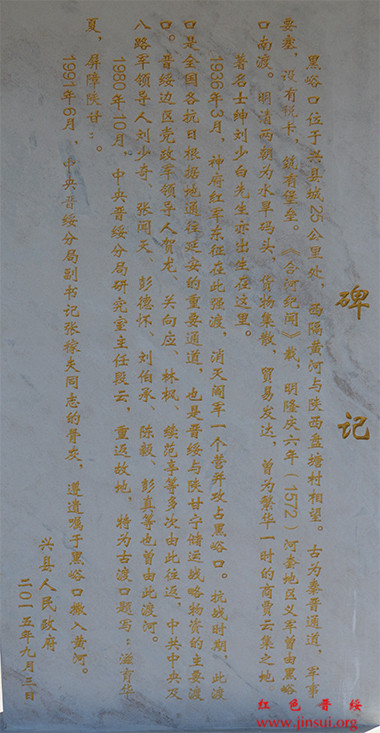 碑记
黑峪口位于兴县城25公里处，西隔黄河与陕西盘塘村相望。古为秦晋通道，军事
要塞，设有税卡，筑有堡垒。《合河纪闻》载，明隆庆六年（1572）河套地区义军曾由黑峪
口南渡。明清两朝为水旱码头，货物集散，贸易发达，曾为繁华一时的商贾云集之地
著名士绅刘少白先生亦出生在这里。
1936年3月，神府红军东征在此强渡，消灭阎军一个营并攻占黑峪口。抗战时期，此渡
口是全国各抗日根据地通往延安的重要通道，也是晋绥与陕甘宁储运战略物资的主要渡
口。晋绥边区党政军领导人贺龙、关向应、林枫、续范亭等多次由此往返，中共中央及
八路军领导人刘少奇、张闻天、彭德怀、刘伯承、陈毅、彭真等也曾由此渡河。
1980年10月，中央晋绥分局研究室主任段云，重返故地，特为古渡口题写：滋育华
夏，屏障陕甘：。
1991年6月，中央晋绥分局副书记张稼夫同志的骨灰，遵遗嘱于黑峪口撒入黄河。
兴县人民政府
二〇一五年九月三日
红色晋绥
www.jinsui.org